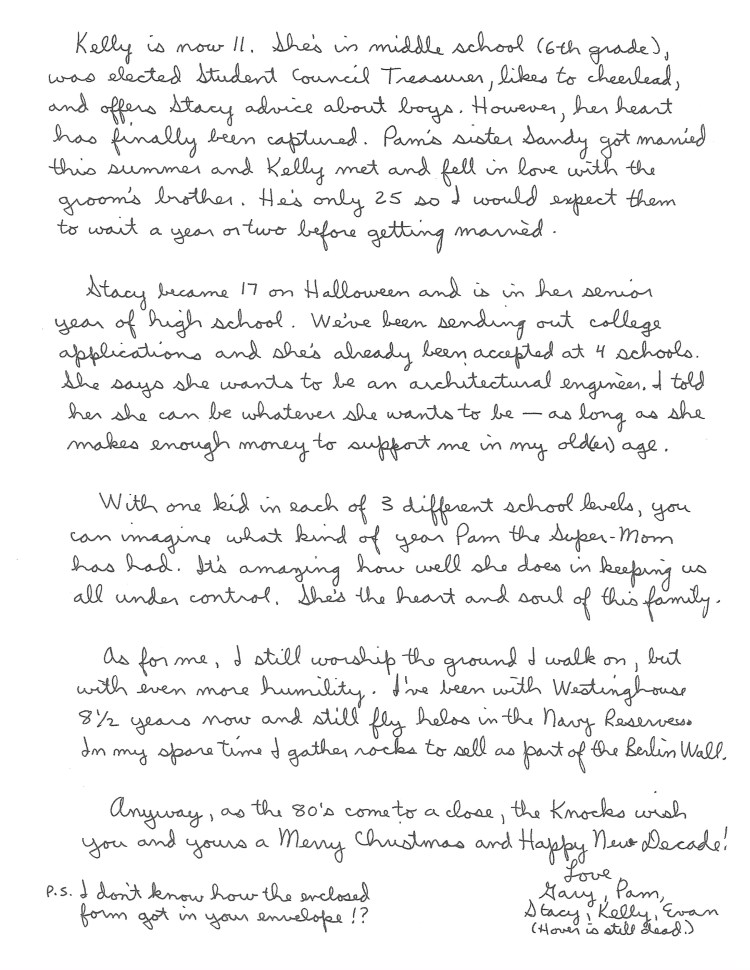 Kelly is now 11. She's in middle school (6th grade),
was elected Student Council Treasurer, likes to cheerlead,
and offers Stacy advice about boys. However, her heart
has finally been captured. Pam's sister Sandy got married
this summer and Kelly met and fell in love with the
groom's brother. He's only 25 so I would expect them
to wait a year or two before getting married.
Stacy became 17 on Halloween and is in her senior
year of high school. We've been sending out college
applications and she's already been accepted at 4 schools.
She says she wants to be an architectural engineer. I told
her she can be whatever she wants to be — as long as she
makes enough money to support me in my old(er) age.
With one kid in each of 3 different school levels, you
can imagine what kind of year Pam the Super-Mom
has had. It's amazing how well she does in keeping us
all under control. She's the heart and soul of this family.
As for me, I still worship the ground I walk on, but
with even more humility. I've been with Westinghouse
8½ years now and still fly helos in the Navy Reserves.
In my spare time I gather rocks to sell as part of the Berlin Wall.
Anyway, as the 80's come to a close, the Knocks wish
you and yours a Merry Christmas and Happy New Decade!
Love,
Gary, Pam,
Stacy, Kelly, Evan
(Hover is still dead.)
P.S. I don't know how the enclosed
form got in your envelope!?